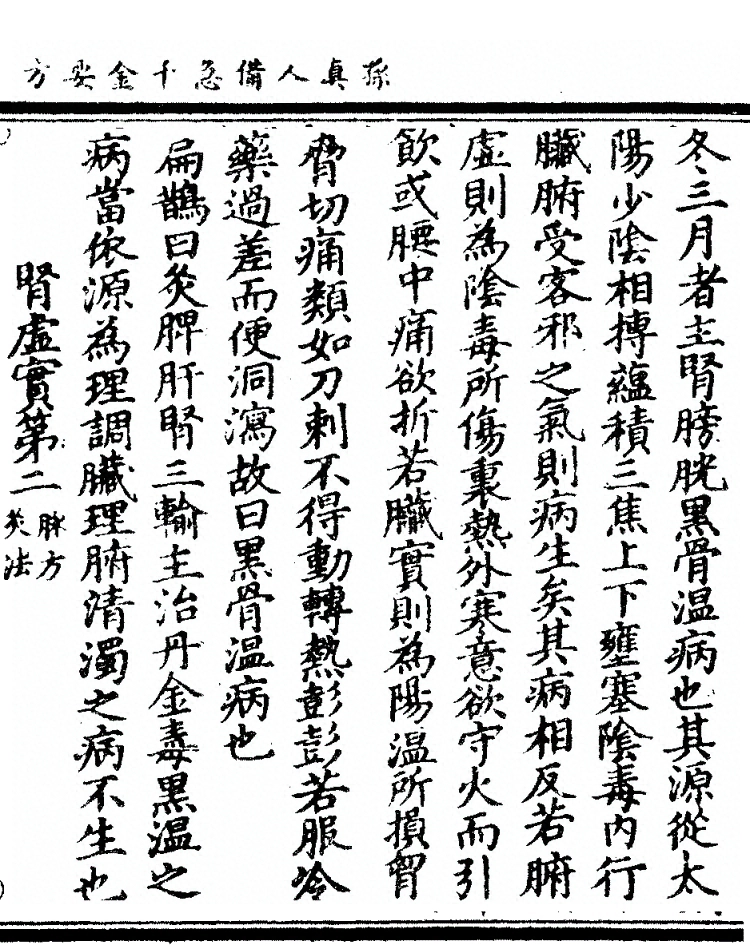 孫真人備急千金要方
冬三月者主腎膀胱黑骨温病也其源從太
陽少陰相摶蘊積三焦上下壅塞陰毒內行
臟腑受客邪之氣則病生矣其病相反若腑
虛則為陰毒所傷裏熱外寒意欲守火而引
飲或腰中痛欲折若臟實則為陽温所損胷
脅切痛類如刀刺不得動轉熱彭彭若服冷
藥過差而便洞瀉故曰黑骨温病也
扁鵲曰灸脾肝腎三輸主治丹金毒黑温之
病當依源為理調臟理腑清濁之病不生也
腎虛實第二 脉方灸法